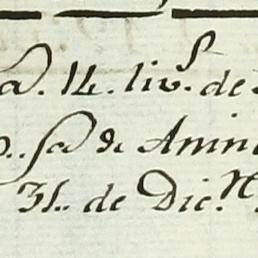 a. 14. liv.ˢ de
sa de Anin
31. de Dic.ʳᵉ